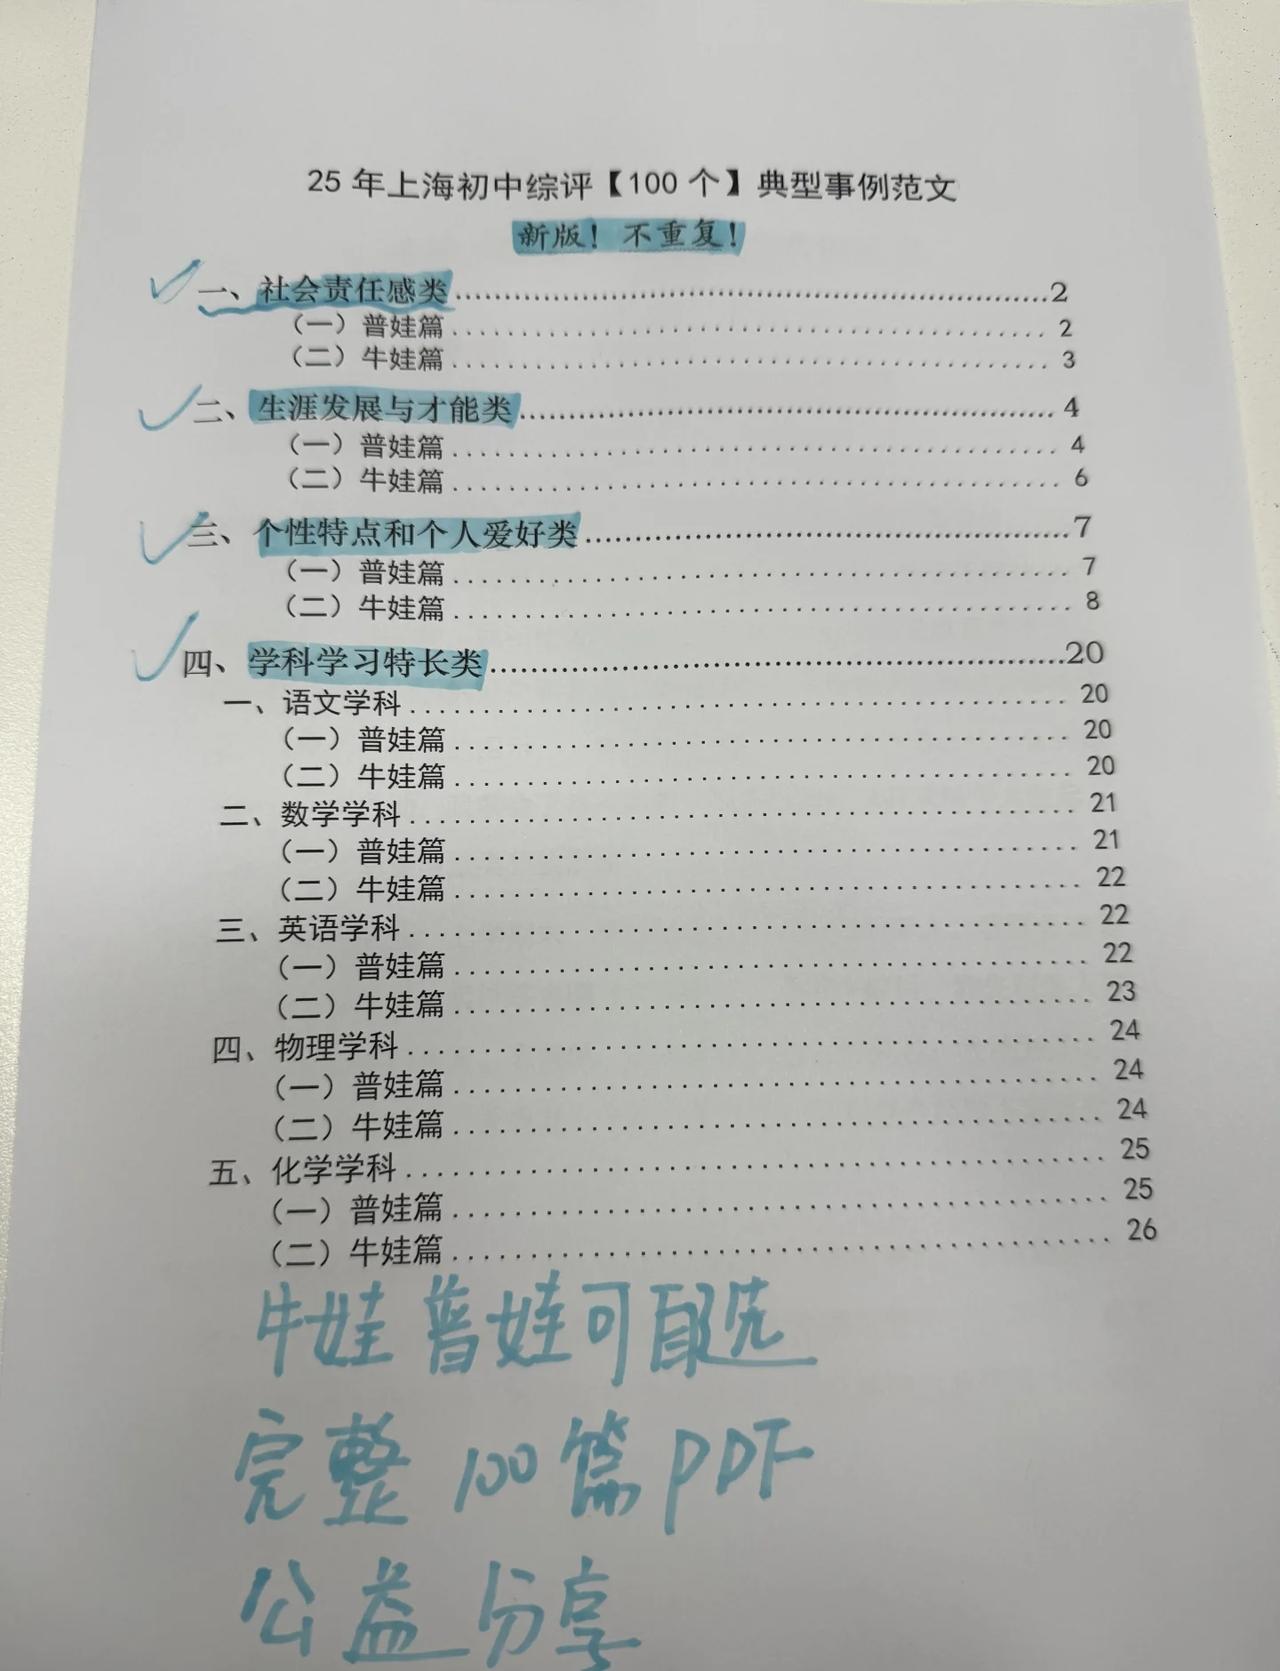 25年上海初中综评【100个】典型事例范文
新版！不重复！
一、社会责任感类..........2
（一）普娃篇..........2
（二）牛娃篇..........3
二、生涯发展与才能类..........4
（一）普娃篇..........4
（二）牛娃篇..........6
三、个性特点和个人爱好类..........7
（一）普娃篇..........7
（二）牛娃篇..........8
四、学科学习特长类..........20
一、语文学科..........20
（一）普娃篇..........20
（二）牛娃篇..........20
二、数学学科..........21
（一）普娃篇..........21
（二）牛娃篇..........22
三、英语学科..........22
（一）普娃篇..........22
（二）牛娃篇..........23
四、物理学科..........24
（一）普娃篇..........24
（二）牛娃篇..........24
五、化学学科..........25
（一）普娃篇..........25
（二）牛娃篇..........26
牛娃普娃可自选
完整100篇PDF
公益分享